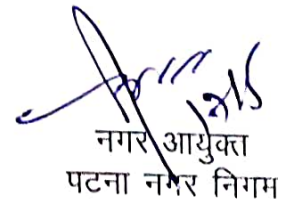 नगर आयुक्त
पटना नगर निगम